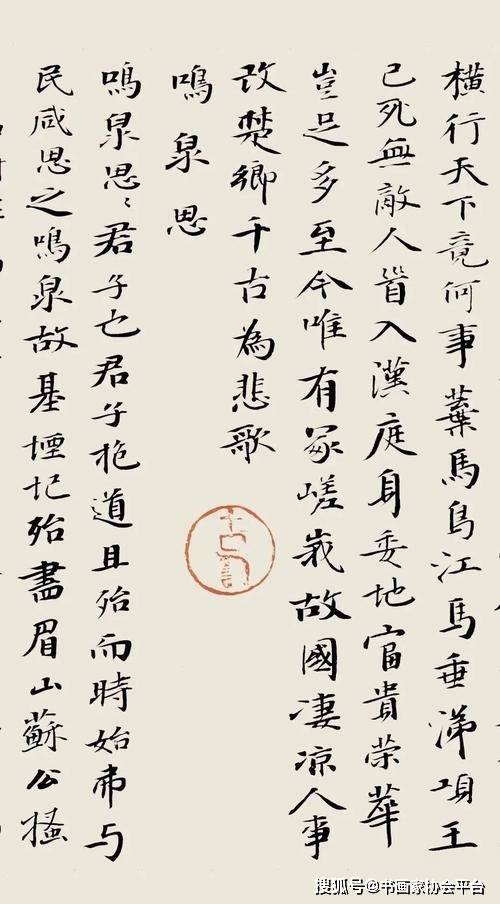 橫行天下竟何事棄馬烏江馬垂涕項王
已死無敵人首入漢庭身委地富貴榮華
豈足多至今唯有冢嵯峨故國凄凉人事
改楚鄉千古為悲歌
鳴泉思
鳴泉思〻君子也君子抱道且殆而時始弗与
民咸思之鳴泉故基堙圮殆盡眉山蘇公搔
搜狐号@书画家协会平台